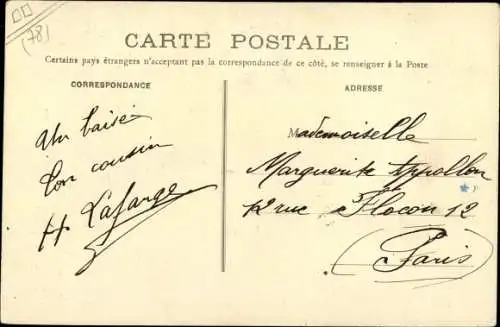 (78)
CARTE POSTALE
Certains pays étrangers n'acceptant pas la correspondance de ce côté, se renseigner à la Poste
CORRESPONDANCE
Un baiser
Ton cousin
H Lafarge
ADRESSE
Mademoiselle
Marguerite Appollon
12 rue Flocon 12
(Paris)